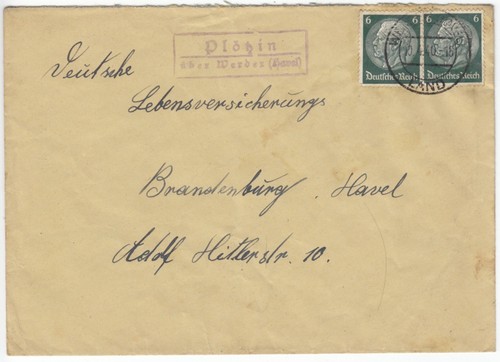 6 6
Deutsches Reich Deutsches Reich
Plötzin
über Werder (Havel)
LAND
Deutsche
Lebensversicherungs
Brandenburg, Havel
Adolf Hitlerstr. 10.